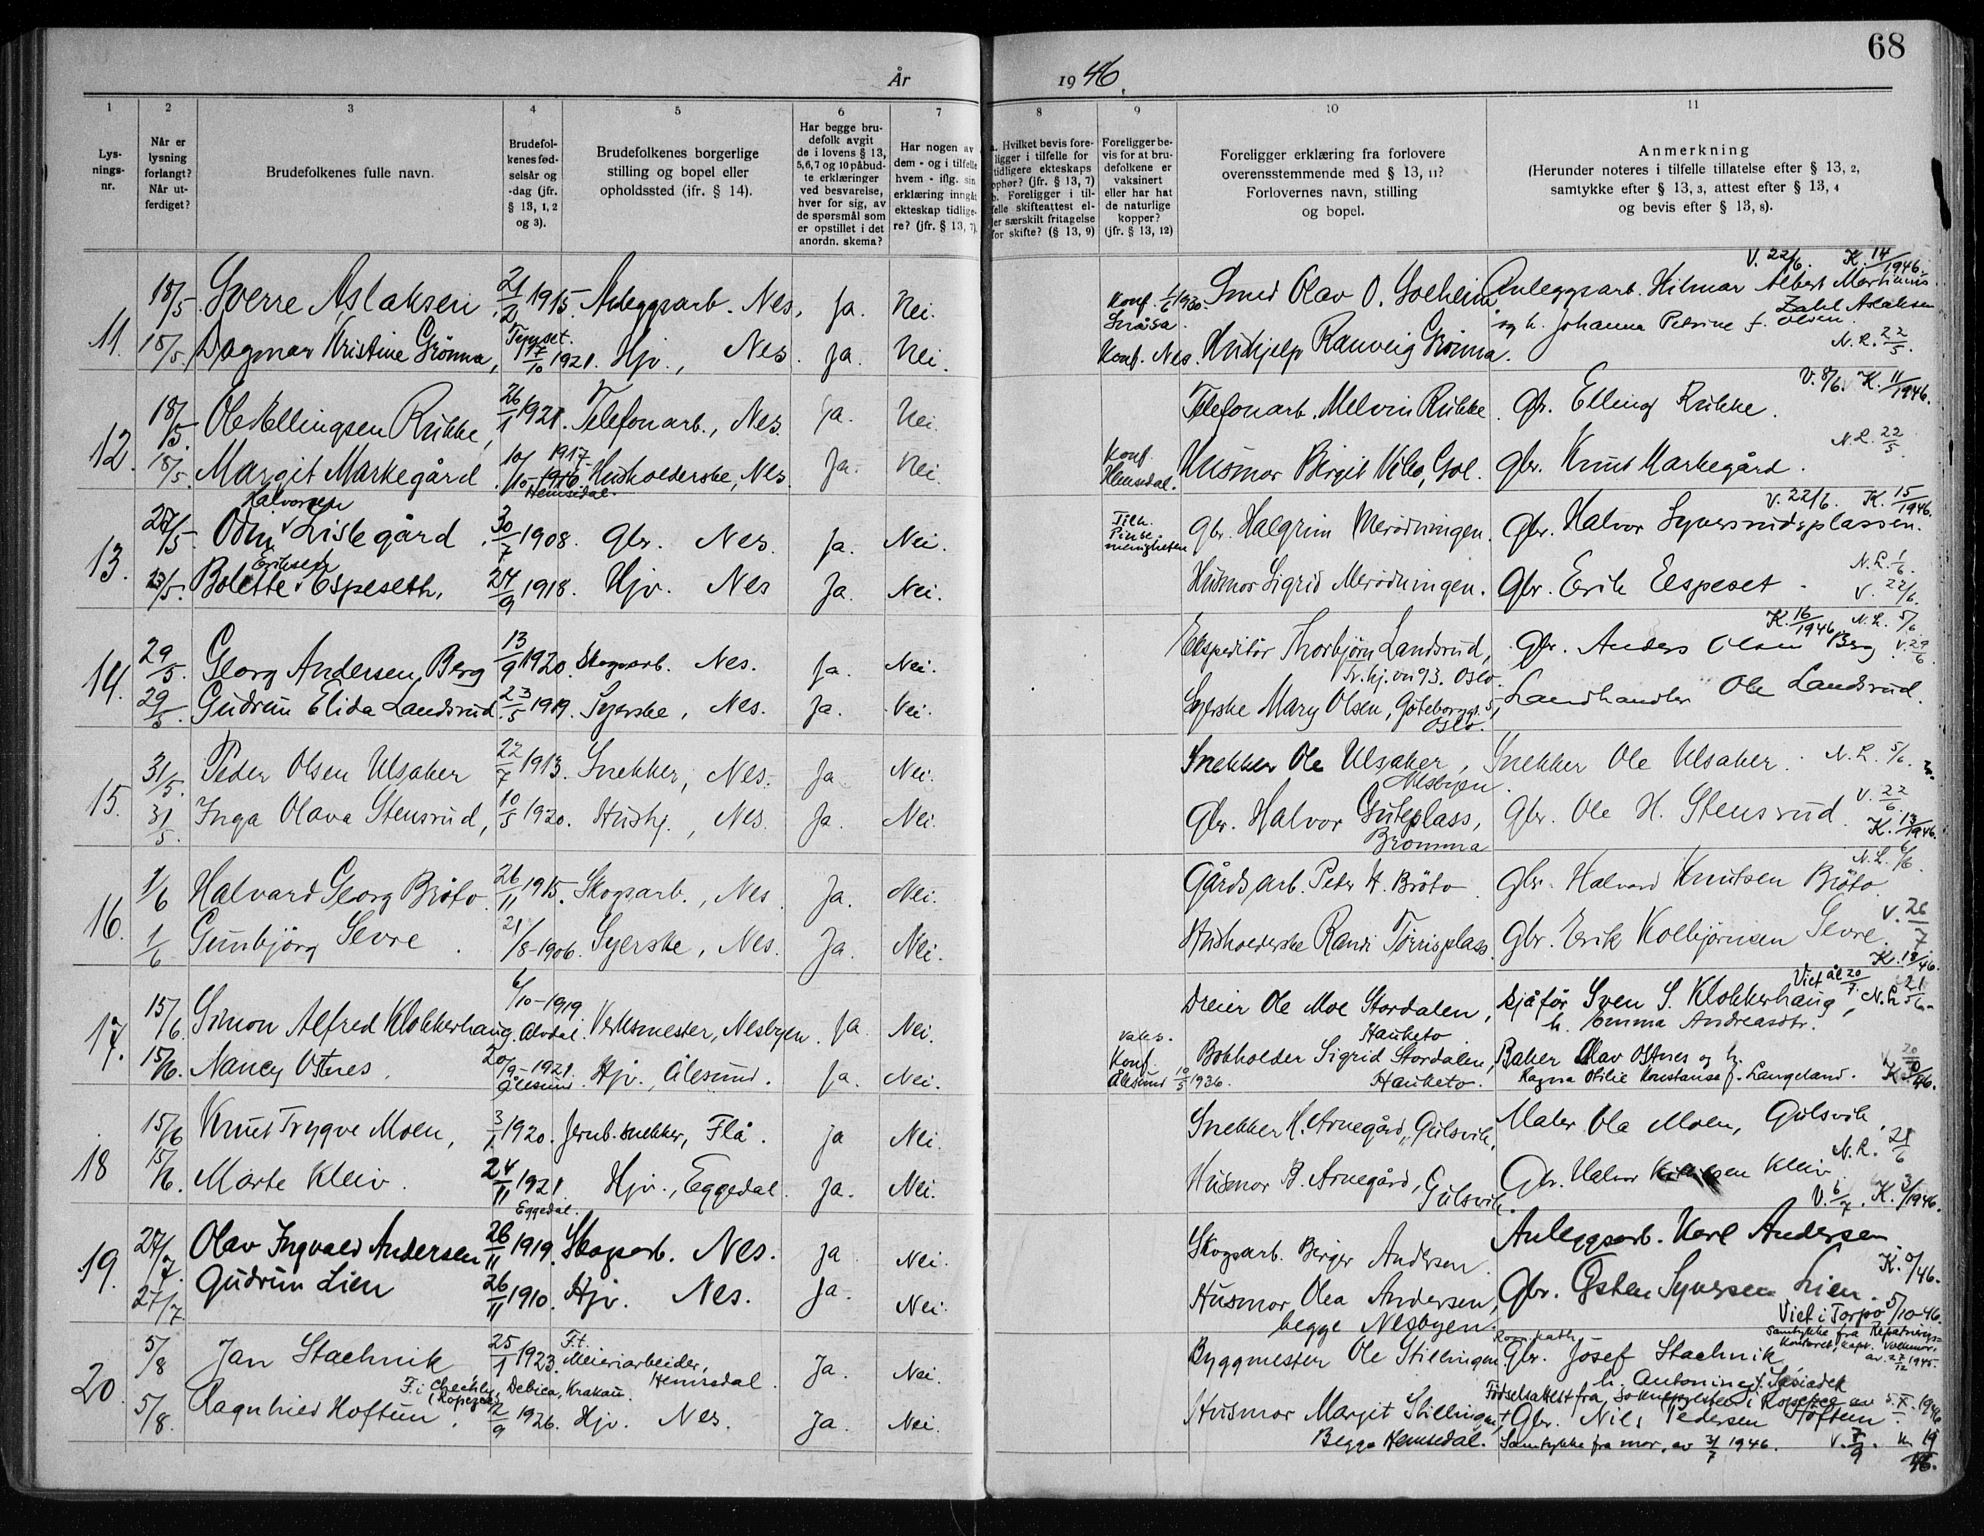 68
År 1946.
1 2 3 4 5 6 7 8 9 10 11
Lysnings-nr.
Når er lysning forlangt? Når utferdiget?
Brudefolkenes fulle navn.
Brudefolkenes fødselsår og -dag (jfr. § 13, 1, 2 og 3).
Brudefolkenes borgerlige stilling og bopel eller opholdssted (jfr. § 14).
Har begge brudefolk avgit de i lovens § 13, 5, 6, 7 og 10 påbudte erklæringer ved besvarelse, hver for sig, av de spørsmål som er opstillet i det anordn. skema?
Har nogen av dem - og i tilfelle hvem - iflg. sin erklæring inngått ekteskap tidligere? (jfr. § 13, 7).
a. Hvilket bevis foreligger i tilfelle for tidligere ekteskaps ophør? (jfr. § 13, 7) b. Foreligger i tilfelle skifteattest eller særskilt fritagelse for skifte? (§ 13, 9)
Foreligger bevis for at brudefolkene er vaksinert eller har hat de naturlige kopper? (jfr. § 13, 12)
Foreligger erklæring fra forlovere overensstemmende med § 13, 11? Forlovernes navn, stilling og bopel.
Anmerkning (Herunder noteres i tilfelle tillatelse efter § 13, 2, samtykke efter § 13, 3, attest efter § 13, 4 og bevis efter § 13, 8).
V. 22/6. K. 14/1946.
11. 18/5. Sverre Aslaksen 21/2 1915. Anleggsarb. Nes. Ja. Nei. Konf. 1930. Snåsa. Smed Olav O. Solheim Anleggsarb. Hilmar Albert Martinius Zahl Aslaksen
Tynset.
og h. Johanna Petrine f. Olsen.
18/5. Dagmar Kristine Grønna, 17/10 1921. Hjv., Nes. Ja. Nei. Konf. Nes. Hushjelp Ranveig Grønna. N.L. 22/5.
V. 8/6. K. 11/1946.
12. 18/5. Ole Ellingsen Rukke, 26/1 1921. Telefonarb., Nes. Ja. Nei. Telefonarb. Melvin Rukke. Gbr. Elling Rukke.
N.L. 22/5.
18/5. Margit Markegård 10/10 1917. 1916. Husholderske, Nes Ja. Nei. Konf. Hemsedal. Husmor Birgit Viko, Gol. Gbr. Knut Markegård.
Hemsedal.
V. 22/6. K. 15/1946.
13. 27/5. Odin Halvorsen Lislegård. 30/7 1908. Gbr. Nes. Ja. Nei. Tilh. Pinsemenigheten Gbr. Halgrim Merødningen. Gbr. Halvor Syversrudsplassen.
N.L. 1/6.
23/5. Bolette Eriksen Espeseth, 24/9 1918. Hjv. Nes Ja. Nei. Husmor Sigrid Merødningen. Gbr. Erik Eespeset.
V. 22/6.
K. 16/1946. N.L. 5/6
14. 29/5. Georg Andersen Berg 13/9 1920. Skogsarb. Nes. Ja. Nei. Ekspeditør Thorbjørn Landsrud, Tr.hj.vn 93. Oslo. Gbr. Anders Olsen Berg V. 29/6
29/5. Gudrun Elida Landsrud. 23/5 1919. Syerske, Nes. Ja. Nei. Syerske Mary Olsen, Gøteborggt. 51 Oslo. Landhandler Ole Landsrud.
15. 31/5. Peder Olsen Ulsaker 22/7 1913. Snekker, Nes. Ja. Nei. Snekker Ole Ulsaker, Nesbyen. Snekker Ole Ulsaker. N.L. 5/6.
31/5. Inga Olava Stensrud, 10/5 1920. Hushj., Nes. Ja. Nei. Gbr. Halvor Guteplass, Bromma Gbr. Ole H. Stensrud V. 22/6. K. 13/1946.
16. 1/6 Halvard Georg Brøto. 26/11 1915. Skogsarb., Nes Ja. Nei. Gårdsarb. Peter H. Brøto. Gbr. Halvard Knutsen Brøto. N.L. 6/6.
1/6 Gunbjørg Sevre. 21/8-1906. Syerske, Nes. Ja. Nei. Husholderske Randi Tørrisplass. Gbr. Erik Kolbjørnsen Sevre. V. 26/7 K. 18/46.
17. 15/6. Simon Alfred Klokkerhaug. 6/10-1919. Alvdal. Verksmester, Nesbyen. Ja. Nei. Dreier Ole Moe Stordalen, Hauketo Sjåfør Sven S. Klokkerhaug, h. Emma Andreasdtr. Viet Ål 20/7. N.L. 21/6.
15/6. Nancy Ostnes. 20/9-1921. Ålesund. Hjv., Ålesund. Ja. Nei. Vaks. Konf. Ålesund 10/5 1936. Bokholder Sigrid Stordalen, Hauketo. Baker Olav Ostnes og h. Ragna Otilie Konstanse f. Langeland. V. 20/7
18 15/6 Knut Trygve Moen, 3/1 1920. Jernb.snekker, Flå. Ja Nei. Snekker H. Arnegård, Gulsvik. Maler Ola Moen, Gulsvik.
N.L. 21/6
15/6. Marte Kleiv. 24/11 1921. Eggedal. Hjv., Eggedal. Ja. Nei. Husmor B. Arnegård, Gulsvik. Gbr. Halvor Kleiv V. 6/7. K. 3/1946.
19. 27/7. Olav Ingvald Andersen 26/11 1919. Skogsarb. Nes. Ja Nei. Skogsarb. Birger Andersen. Anleggsarb. Karl Andersen. K. 5/46.
27/7 Gudrun Lien 26/11 1910. Hjv. Nes. Ja. Nei. Husmor Olea Andersen, begge Nesbyen. Gbr. Østen Syversen Lien.
Viet i Torpo 5/10-46.
20. 5/8 Jan Stachnik 25/1 1923. F.t. Meieriarbeider, Hemsedal. Ja. Nei. Byggmester Ole Stillingen Rom.kath. Gbr. Josef Stachnik h. Antonine f. Sasiadek
Samtykke fra Repatrierings-kontoret, kapt. Volkmar, av 27/12 1945.
F. i Chechly, Debica, Krakau. (Ropczyce)
Fødselsattest fra soknepresten i Ropczyce av 5.X.1946
5/8. Ragnhild Hoftun. 2/9 1926. Hjv. Nes. Ja. Nei. Husmor Margit Stillingen, Begge Hemsedal. Gbr. Nils Pedersen Hoftun.
Samtykke fra mor, av 31/7 1946. V. 7/9. K. 19/46.